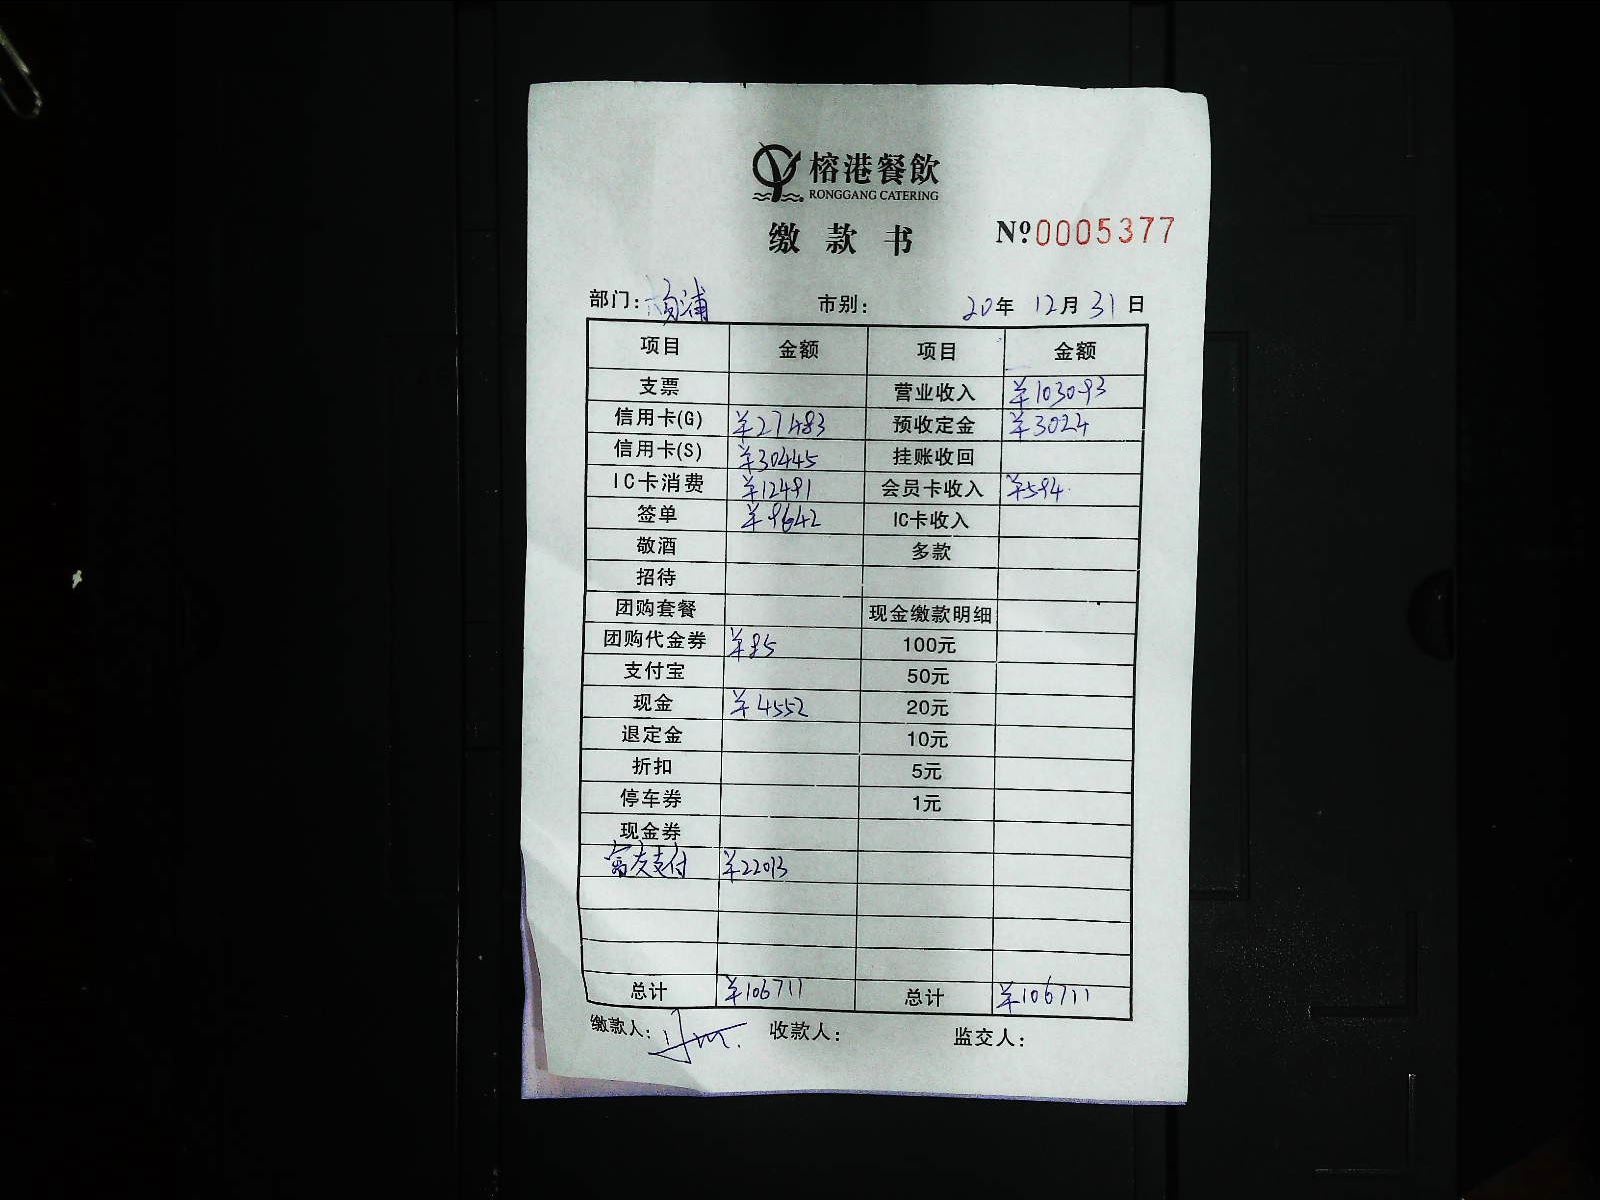 榕港餐飲
RONGGANG CATERING
缴款书 №0005377
部门：杨浦 市别： 20年 12月 31日
项目 金额 项目 金额
支票 营业收入 ¥103093
信用卡(G) ¥27483 预收定金 ¥3024
信用卡(S) ¥30445 挂账收回
IC卡消费 ¥12491 会员卡收入 ¥594
签单 ¥9642 IC卡收入
敬酒 多款
招待
团购套餐 现金缴款明细
团购代金券 ¥85 100元
支付宝 50元
现金 ¥4552 20元
退定金 10元
折扣 5元
停车券 1元
现金券
富友支付 ¥22013
总计 ¥106711 总计 ¥106711
缴款人： 收款人： 监交人：